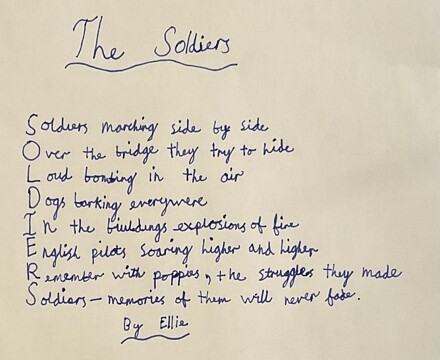 The Soldiers
Soldiers marching side by side
Over the bridge they try to hide
Loud bombing in the air
Dogs barking everywere
In the buildings explosions of fire
English pilots soaring higher and higher
Remember with poppies, the struggles they made
Soldiers – memories of them will never fade.
By Ellie